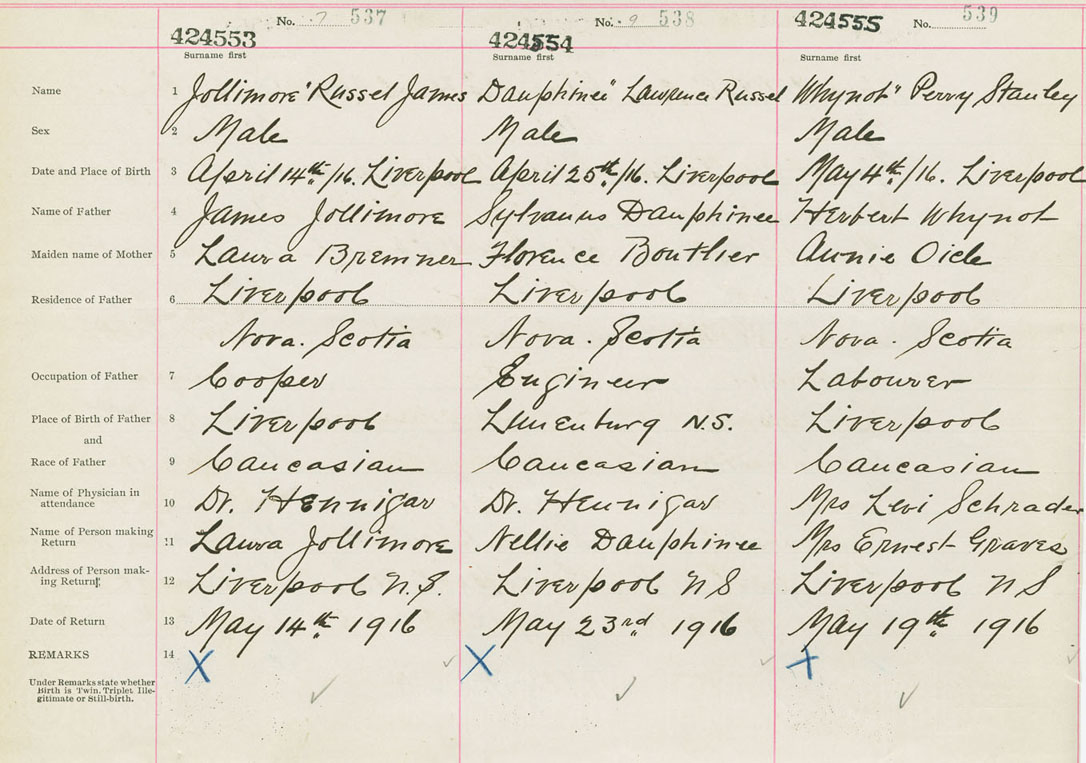 No. 7 537
No. 9 538
No. 539
424553
424554
424555
Surname first
Surname first
Surname first
Name 1 Jollimore" Russel James Dauphinee" Lawrence Russel Whynot" Perry Stanley
Sex 2 Male Male Male
Date and Place of Birth 3 April 14th/16. Liverpool April 25th/16. Liverpool May 4th/16. Liverpool
Name of Father 4 James Jollimore Sylvanus Dauphinee Herbert Whynot
Maiden name of Mother 5 Laura Bremner Florence Bouthier Annie Oicle
Residence of Father 6 Liverpool Liverpool Liverpool
Nova. Scotia Nova. Scotia Nova. Scotia
Occupation of Father 7 Cooper Engineer Labourer
Place of Birth of Father 8 Liverpool Lunenburg N.S. Liverpool
and
Race of Father 9 Caucasian Caucasian Caucasian
Name of Physician in
attendance 10 Dr. Hennigar Dr. Hennigar Mrs Levi Schrader
Name of Person making
Return 11 Laura Jollimore Nellie Dauphinee Mrs Ernest Graves
Address of Person mak-
ing Return 12 Liverpool N.S. Liverpool N S Liverpool N S
Date of Return 13 May 14th 1916 May 23rd 1916 May 19th 1916
REMARKS 14 X X X
Under Remarks state whether
Birth is Twin, Triplet Ille-
gitimate or Still-birth.